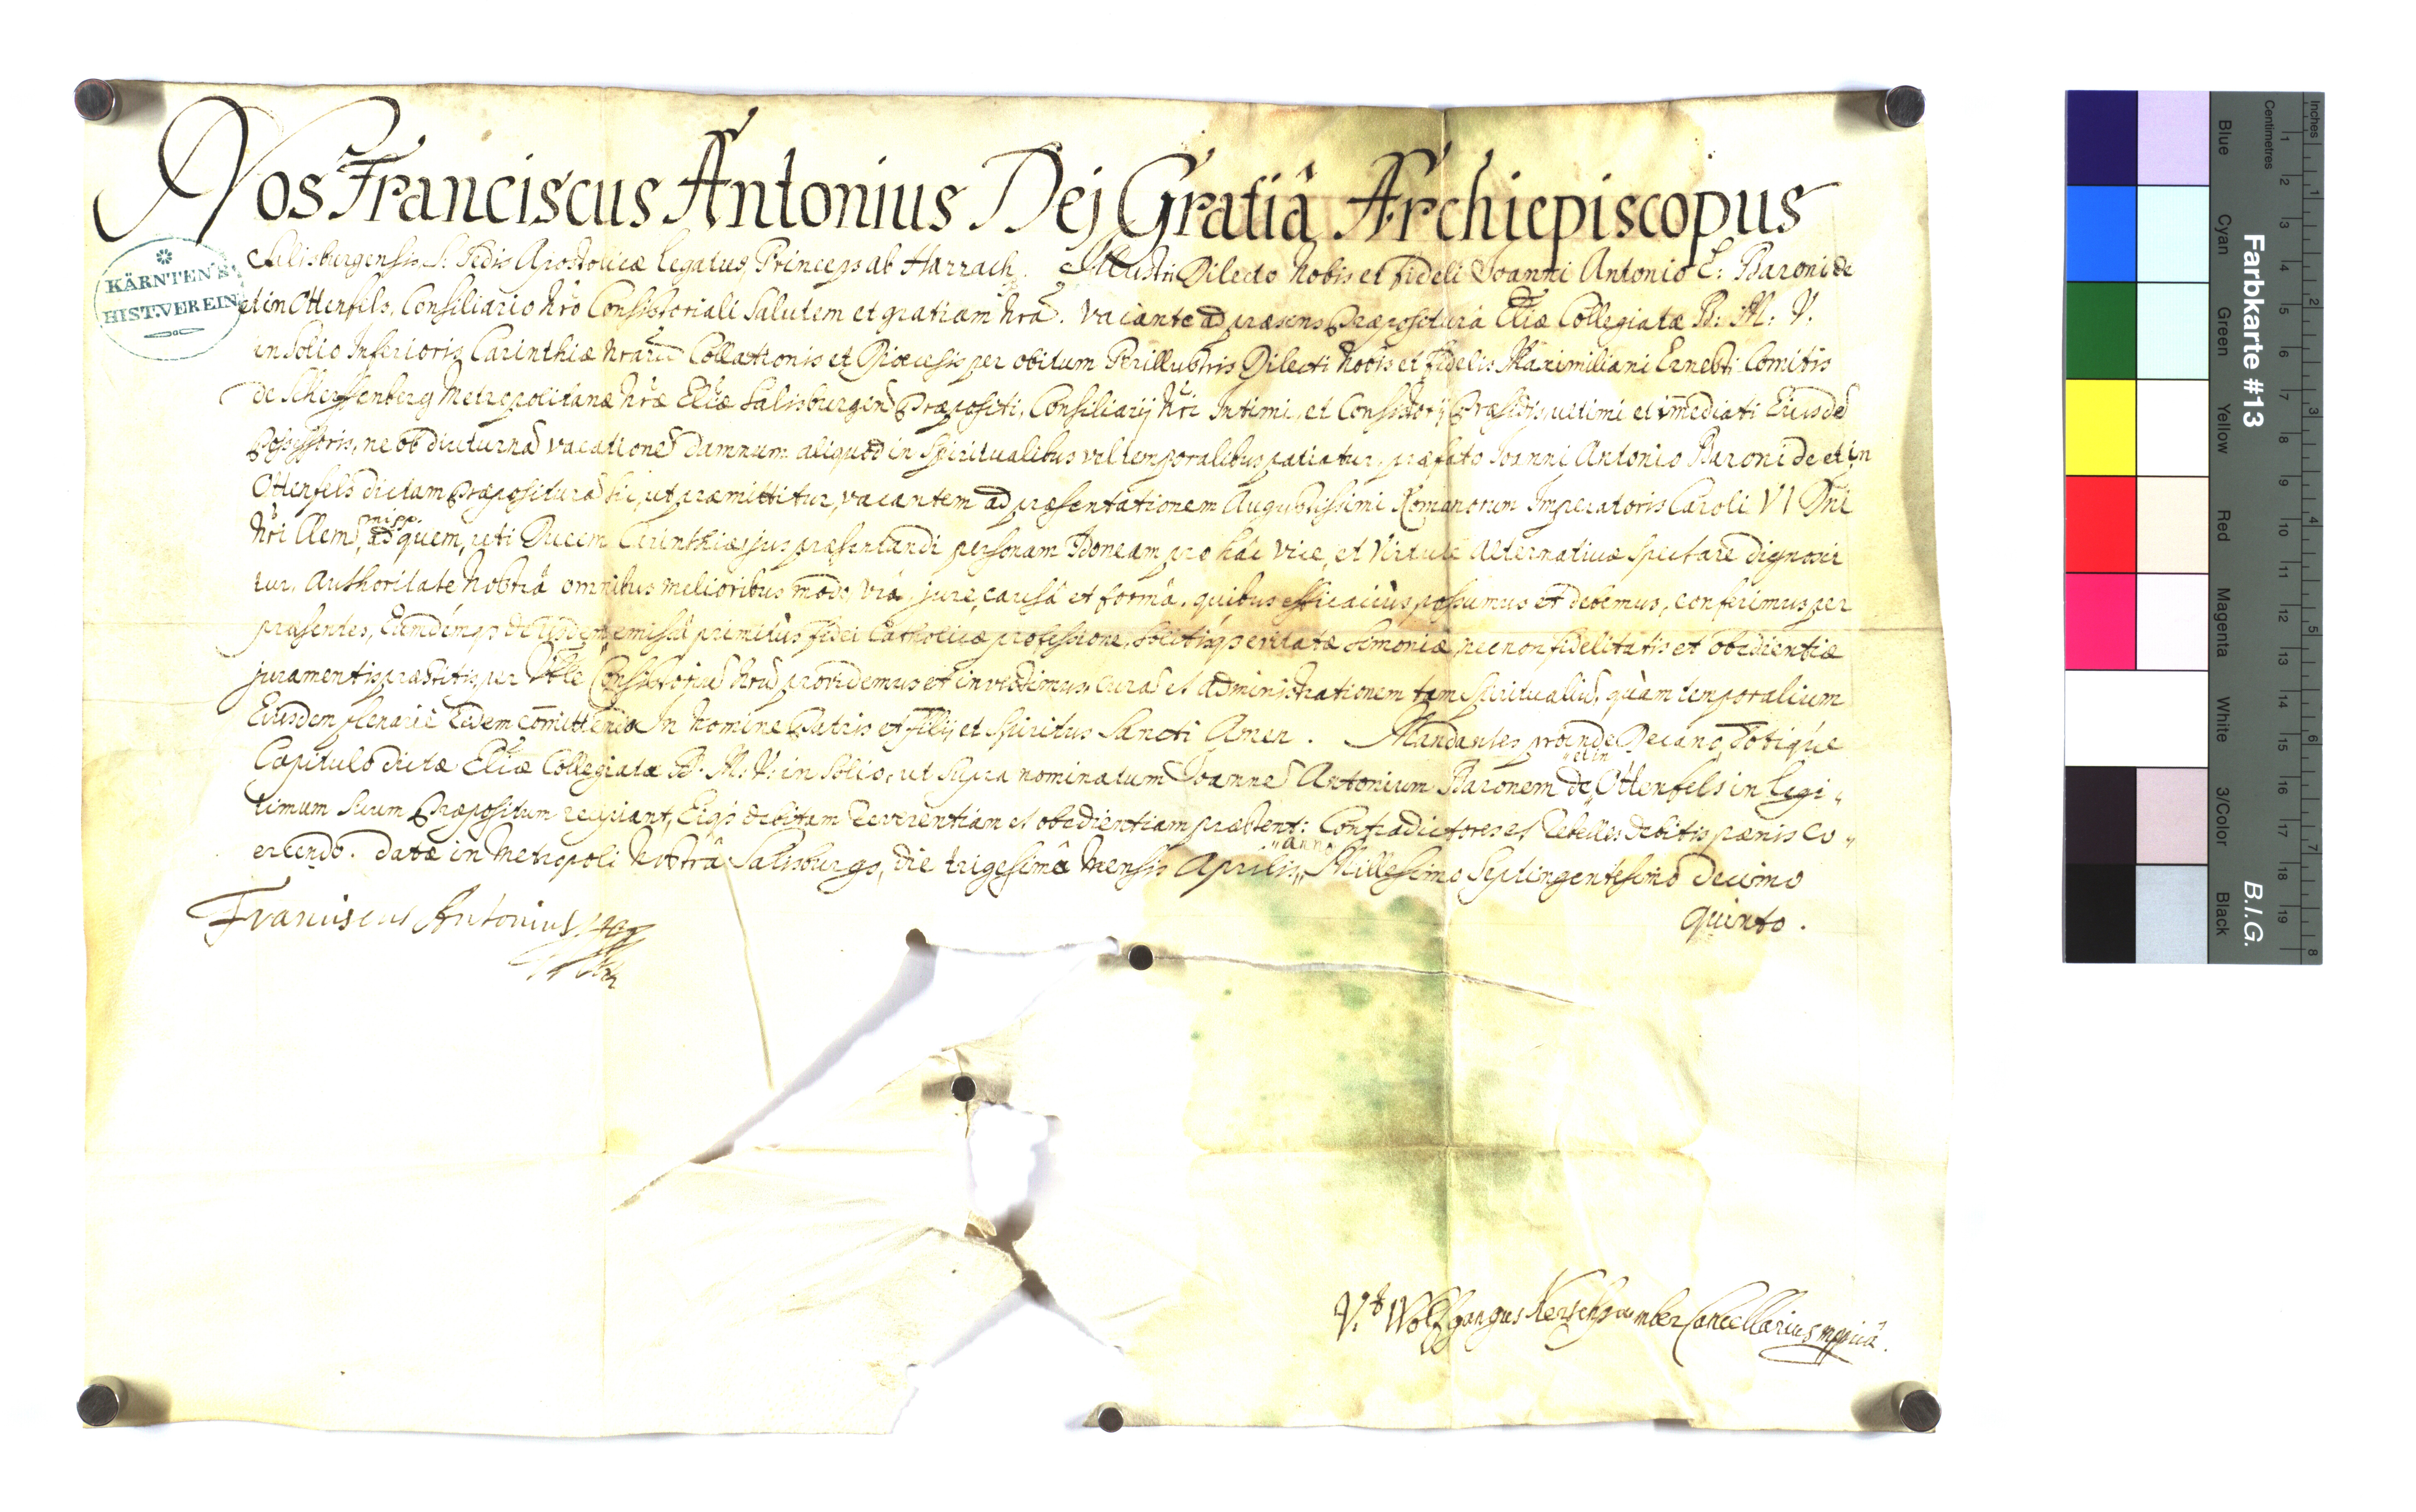 Nos Franciscus Antonius Dej Gratiâ Archiepiscopus
Salisburgensis S: Sedis Apostolicæ Legatus, Princeps ab Harrach. Illustri Dilecto Nobis et fideli Joanni Antonio L: Baroni de
et in Ottenfels, Consiliario Nrõ Consistoriali Salutem et gratiam Nrã. Vacante ad præsens Præpositurâ Ecl̃iæ Collegiatæ B: M: V.
in Solio Inferioris Carinthiæ Nrarũ Collationis et Diœcesis per obitum Perillustris Dilecti Nobis et fidelis Maximiliani Ernesti Comitis
de Scherffenberg Metropolitanæ Nræ Ecl̃iæ Salisburgen̄ Præpositi, Consiliarij Nr̃i Intimi, et Consistorij Præsidis, ultimi et im̃ediati Eiusdē
Possessoris, ne ob diuturnā vacationē damnum aliquod in Spiritualibus vel temporalibus patiatur, præfato Joanni Antonio Baroni de et in
Ottenfels dictam Præpositurā sic, ut præmittitur, vacantem ad præsentationem Augustissimi Romanorum Imperatoris Caroli VI Dñi
Nr̃i Clem̃
misp.
ad quem, uti Ducem Carinthiæ, jus præsentandi personam Idoneam pro hâc vice, et virtute alternativæ spectare dignosci
tur, Authoritate Nostrâ omnibus melioribus modo, viâ, jure, causâ et formâ, quibus efficaciùs possumus et debemus, conferimus per
præsentes, Eundémq3 de eâdem, emissâ primitùs fidei Catholicæ professione, solitisq3 evitatæ simoniæ, necnon fidelitatis et obedientiæ
juramentis præstitis, per Consistoriū Nrū providemus et investimus, curā et administrationem tam Spiritualiū, quàm temporalium
Eiusdem plenariè Eidem com̃ittendo In Nomine Patris et Filij et Spiritus Sancti Amen. Mandantes proinde Decano, totíque
Capitulo dictæ Ecl̃iæ Collegiatæ B. M: V: in Solio, ut supra nominatum Joannē Antonium Baronem de
„et in
„Ottenfels in legi„
timum suum Præpositum recipiant, Eiq3 debitam reverentiam et obedientiam præstent: Contradictores et Rebelles debitis pœnis co„
ercendo. Datæ in Metropoli Nostrâ Salisburgo, die trigesimâ Mensis Aprilis,
„anno
„Millesimo Septingentesimo decimo
quinto.
Franciscus Antonius
Vt. Wolfgangus Kerschpaumber Cancellarius mppriâ.
KÄRNTEN'S
HIST.VEREIN
Farbkarte #13
B.I.G.
Blue
Cyan
Green
Yellow
Red
Magenta
White
3/Color
Black
Inches
Centimetres
1 2 3 4 5 6 7 8 9 10 11 12 13 14 15 16 17 18 19
1 2 3 4 5 6 7 8